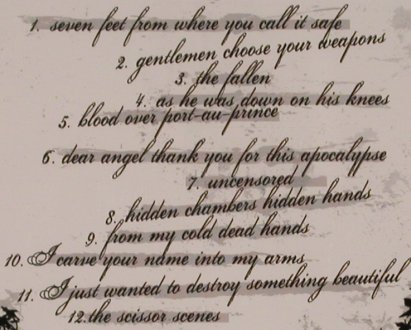 1. seven feet from where you call it safe
2. gentlemen choose your weapons
3. the fallen
4. as he was down on his knees
5. blood over port-au-prince
6. dear angel thank you for this apocalypse
7. uncensored
8. hidden chambers hidden hands
9. from my cold dead hands
10. I carve your name into my arms
11. I just wanted to destroy something beautiful
12. the scissor scenes